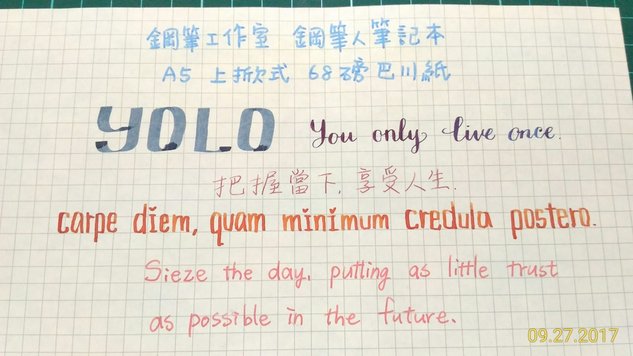 鋼筆工作室 鋼筆人筆記本
A5 上掀式 68磅巴川紙
YOLO You only live once.
把握當下, 享受人生.
carpe diem, quam minimum credula postero.
Sieze the day, putting as little trust
as possible in the future.
09.27.2017